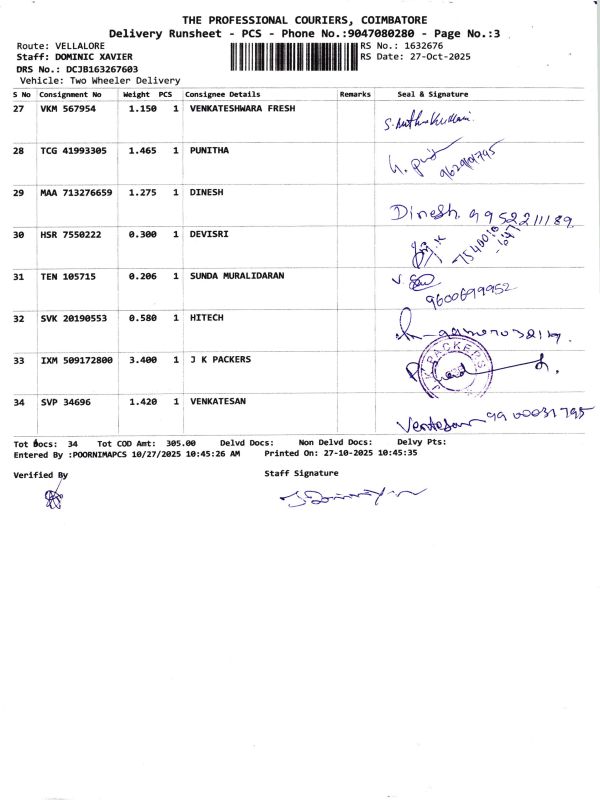 THE PROFESSIONAL COURIERS, COIMBATORE
Delivery Runsheet - PCS - Phone No.:9047080280 - Page No.:3
Route: VELLALORE RS No.: 1632676
Staff: DOMINIC XAVIER RS Date: 27-Oct-2025
DRS No.: DCJB163267603
Vehicle: Two Wheeler Delivery
S No Consignment No Weight PCS Consignee Details Remarks Seal & Signature
27 VKM 567954 1.150 1 VENKATESHWARA FRESH
28 TCG 41993305 1.465 1 PUNITHA
29 MAA 713276659 1.275 1 DINESH
Dinesh. 9952211189.
30 HSR 7550222 0.300 1 DEVISRI
31 TEN 105715 0.206 1 SUNDA MURALIDARAN
9600699952
32 SVK 20190553 0.580 1 HITECH
33 IXM 509172800 3.400 1 J K PACKERS
PACKERS
34 SVP 34696 1.420 1 VENKATESAN
Venkatesan
Tot Docs: 34 Tot COD Amt: 305.00 Delvd Docs: Non Delvd Docs: Delvy Pts:
Entered By :POORNIMAPCS 10/27/2025 10:45:26 AM Printed On: 27-10-2025 10:45:35
Verified By Staff Signature